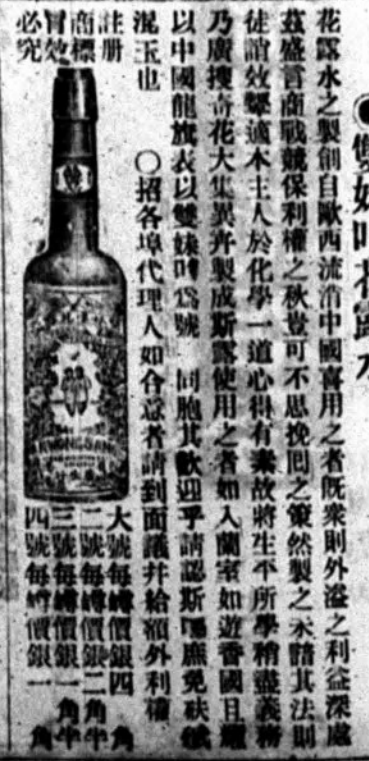 ●雙妹嘜花露水
花露水之製創自歐西流消中國喜用之者旣衆則外溢之利益深處
茲盛言商戰競保利權之秋豈可不思挽囘之策然製之未諳其法則
徒誚效顰適本主人於化學一道心得有素故將生平所學稍盡義務
乃廣搜奇花大集異卉製成斯露使用之者如入蘭室如遊香國且耀
以中國龍旗表以雙妹嘜爲號 同胞其歡迎乎請認斯嘜庶免砆碔
混玉也 ○招各埠代理人如合意者請到面議幷給額外利權
註册
商標
冒效
必究
KWONG SANG
大號每罇價銀四角
二號每罇價銀二角半
三號每罇價銀一角半
四號每罇價銀一角